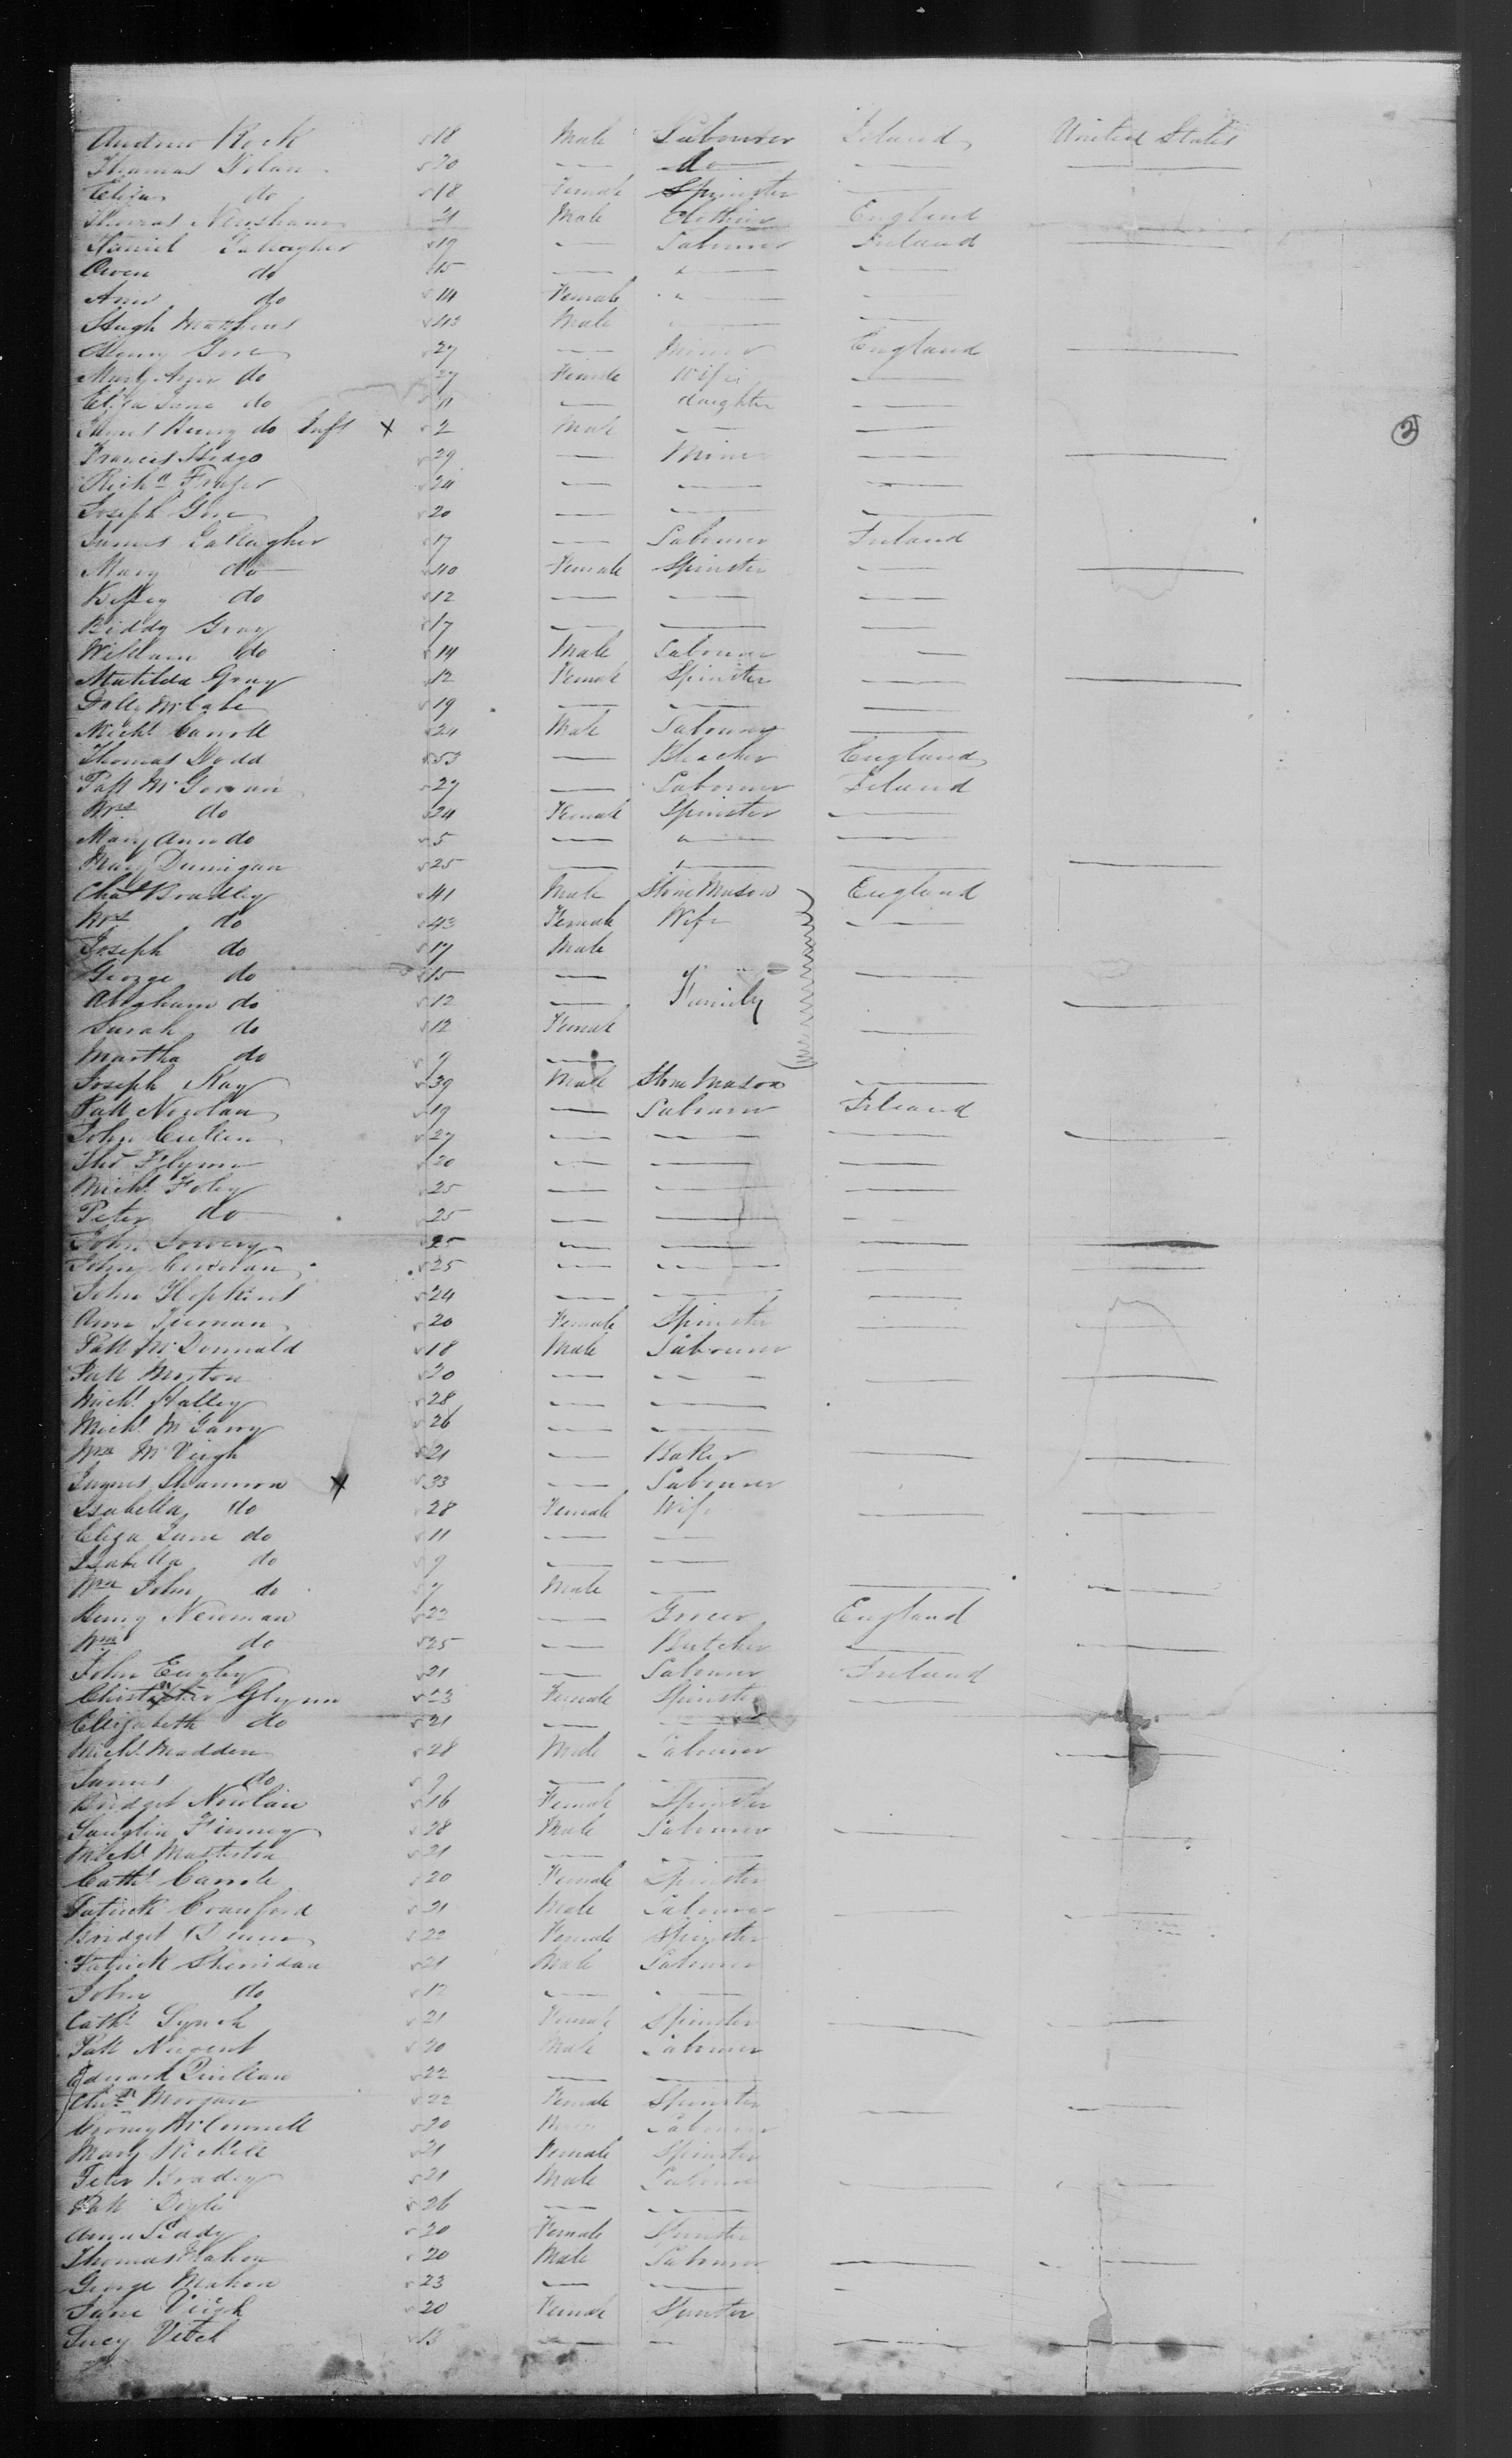 Andrew Rock 18 Male Labourer Ireland United States
Thomas Nolan 20 — do — —
Eliza do 18 Female Spinster —
Thomas 21 Male Clothier England
Daniel Gallagher 19 — Labourer Ireland —
Owen do 15 — " — —
Ann do 14 Female " — —
Hugh Matthews 43 Male — —
Henry Gore 27 — Miner England —
Mary Ann do 27 Female Wife —
Eliza Jane do 11 — daughter —
James Henry do Inft X 2 Male — —
Francis Hodge 29 — Miner — —
Richd Frazer 24 — — —
Joseph Gore 20 — — —
James Gallagher 17 — Labourer Ireland
Mary do 40 Female Spinster — —
do 12 — — —
Biddy Gray 17 — — —
William do 14 Male Labourer —
Matilda Gray 12 Female Spinster — —
McCabe 19 — — —
Michl Carroll 24 Male Labourer —
Thomas Dodd 53 — Bleacher England
Patt McGowan 27 — Labourer Ireland
Mrs do 24 Female Spinster —
Mary Ann do 5 — " — —
Mary Dunigan 25 — — — —
Chas Bradley 41 Male Stone Mason England
Mrs do 43 Female Wife —
Joseph do 17 Male
George do 15 — —
Abraham do 12 — Family —
Sarah do 12 Female —
Martha do 9 —
Joseph Kay 39 Male Stone Mason —
Patt Nowlan 19 — Labourer Ireland
John Cullen 27 — — — —
Thos Flynn 20 — — —
Michl Foley 25 — — —
Peter do 25 — — —
John Lowery 25 — — — —
John Corcoran 25 — — — —
John Hopkins 24 — — —
Ann Tiernan 20 Female Spinster — —
Patt McDonnald 18 Male Labourer
Patt Morton 20 — — — —
Michl Halley 28 — —
Michl McGarry 26 — —
Wm McVeigh 21 — Baker — —
James Shannon X 33 — Labourer
Isabella do 28 Female Wife — —
Eliza Jane do 11 — —
Isabella do 9 — —
Wm John do 7 Male — — —
Henry Newman 22 — Grocer England
Wm do 25 — Butcher — —
John 21 — Labourer Ireland
Glynn 23 Female Spinster —
Elizabeth do 21 — —
Michl Madden 28 Male Labourer —
James do 9 — —
Bridget Nowlan 16 Female Spinster
Finney 28 Male Labourer — —
Michl Masterton 21 — —
Cathe 20 Female Spinster
Patrick Crawford 21 Male Labourer — —
Bridget 22 Female Spinster
Patrick Sheridan 21 Male Labourer
John do 12 — —
Cathe Lynch 21 Female Spinster — —
Patt Nugent 20 Male Labourer
Edward Quillan 22 — —
Morgan 22 Female Spinster — —
McConnell 20 Labourer
Mary 21 Female Spinster
Peter Brady 21 Male Labourer — —
Patt Doyle 26 — —
Ann 20 Female Spinster
Thomas Mahon 20 Male Labourer — —
George Mahon 23 — — —
Jane Veitch 20 Female Spinster
Lucy Vetch 13 — — — —
2